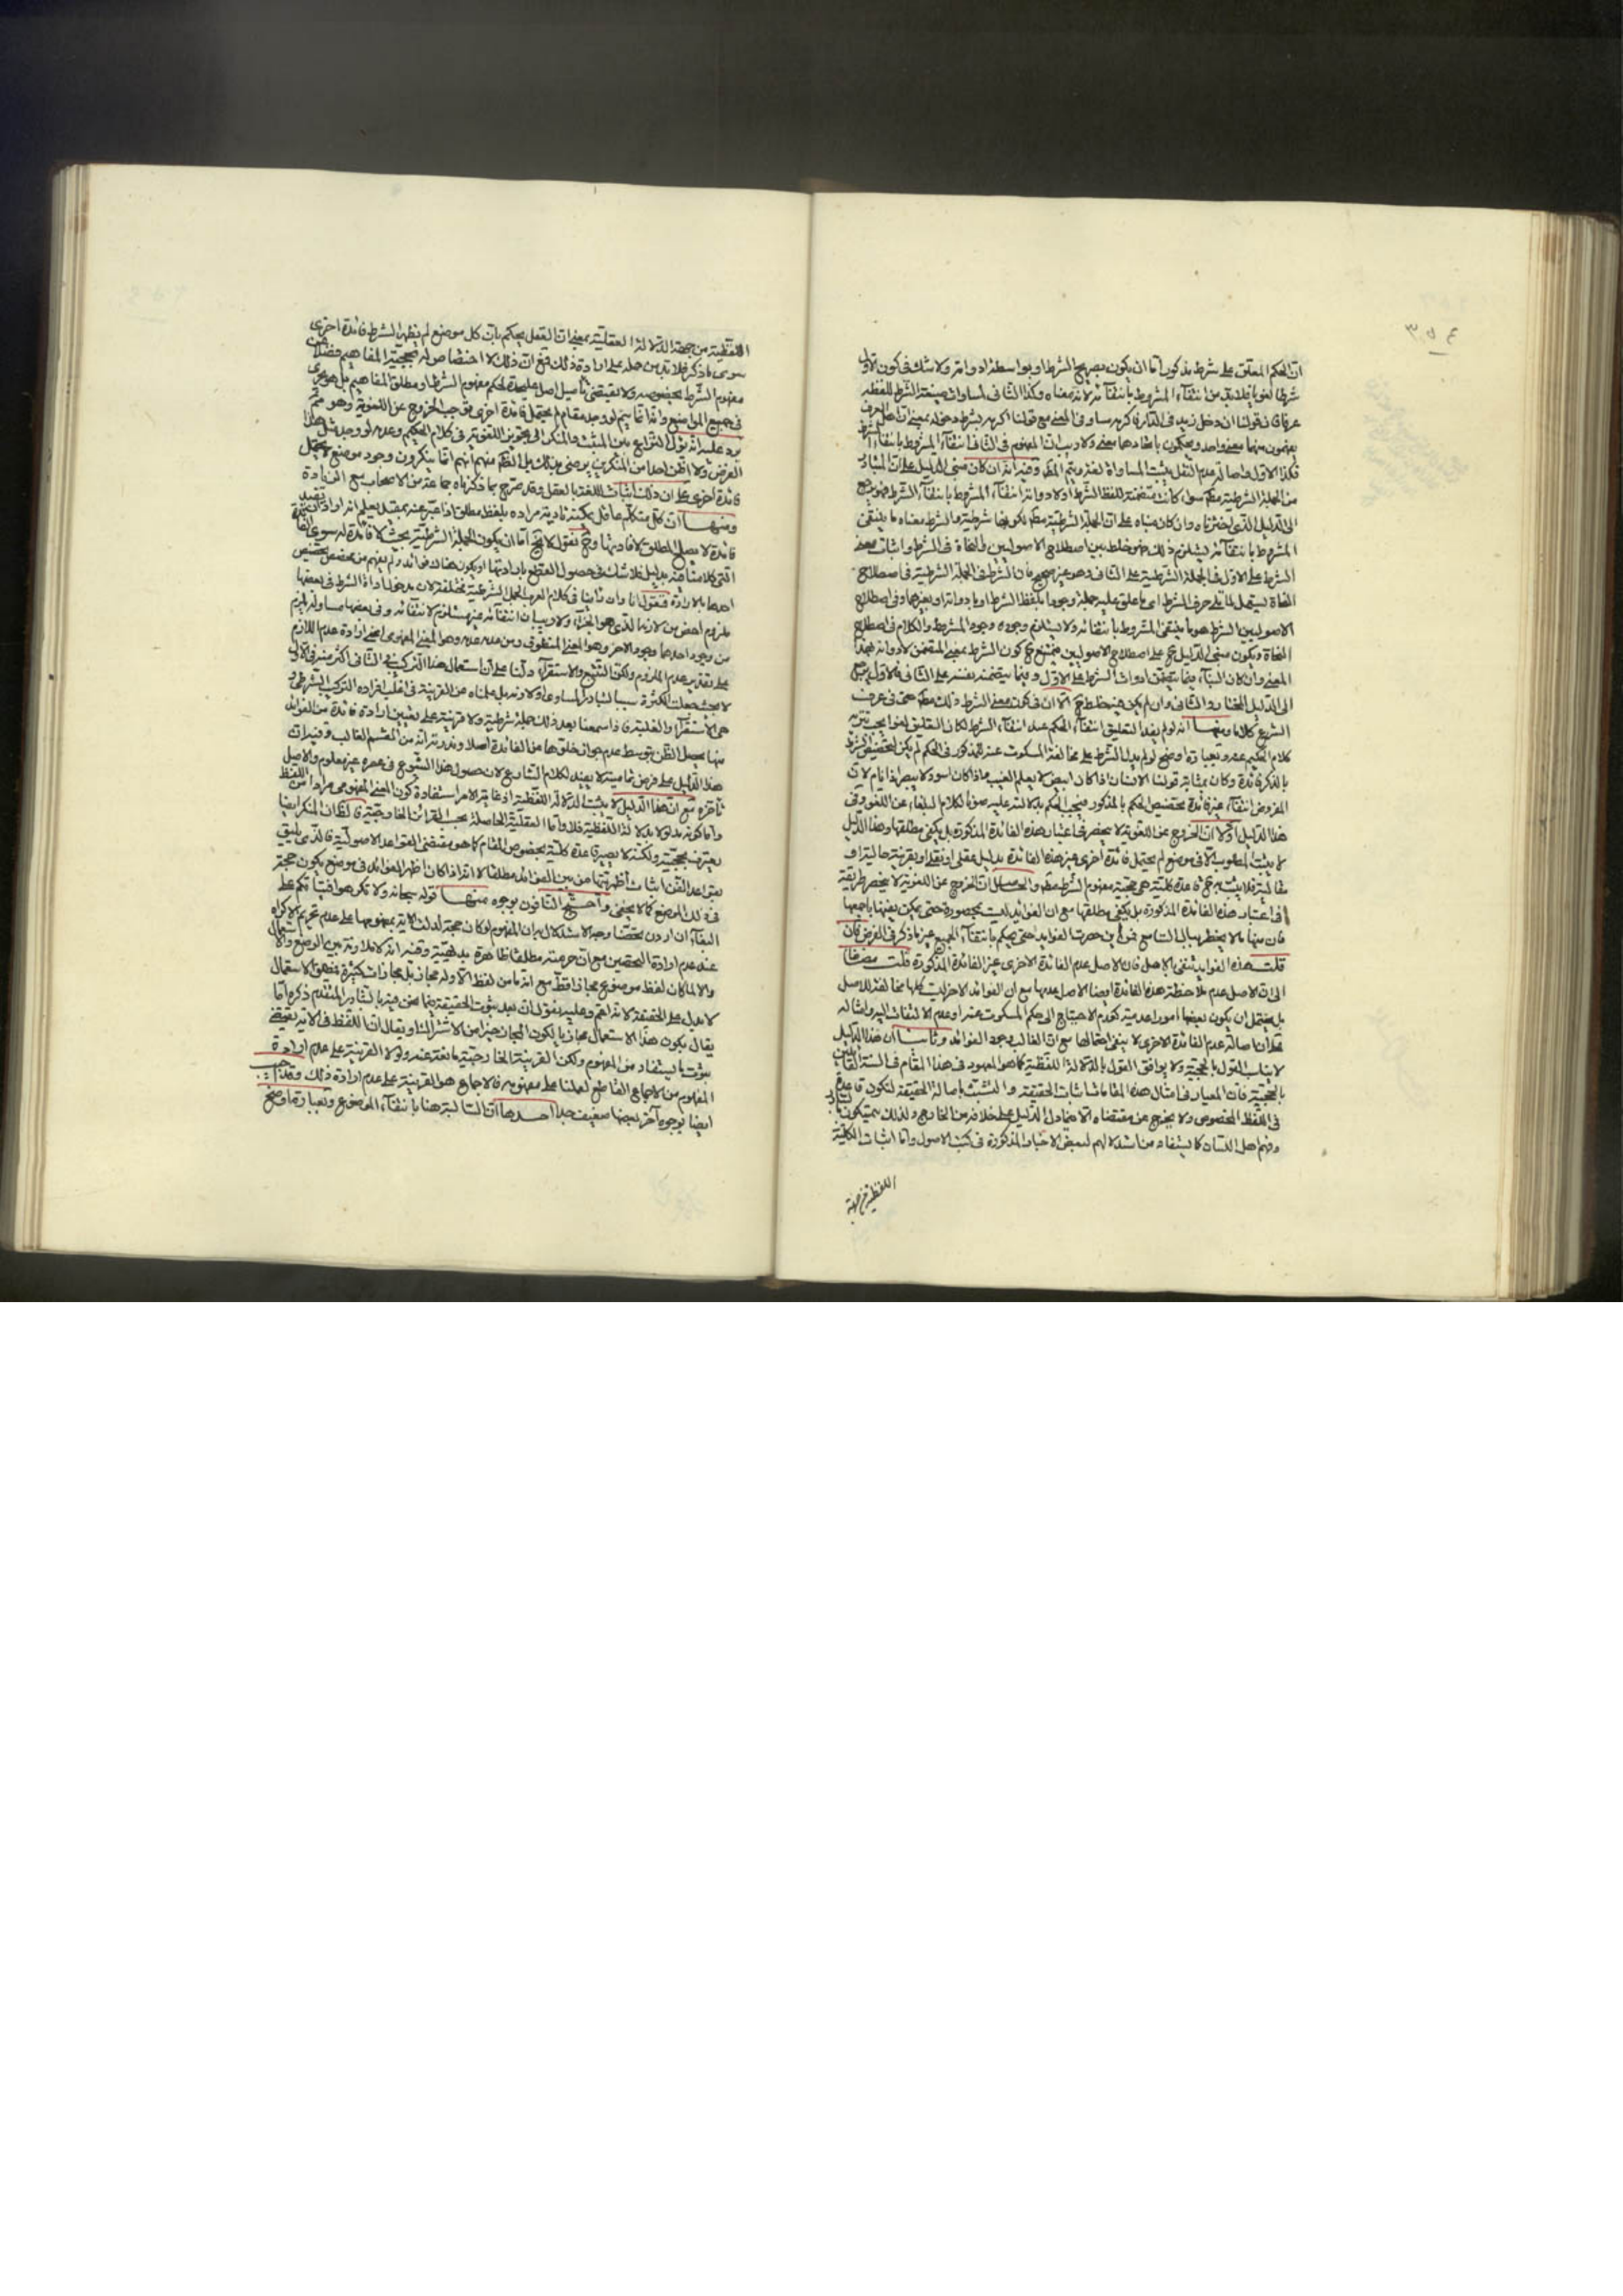 ان الحكم المعلق على شرط مذكور اما ان يكون بصريح الشرط او بواسطة ادواته ولا شك في كون الاول
شرطا لغويا فلا بد من انتفاء المشروط بانتفائه لانه معناه وكذا الثاني لمساواته صيغة الشرط للفظه
عرفا فان قولنا ان دخل زيد في الدار فاكرمه يساوي في المعنى مع قولنا اكرمه بشرط دخوله بمعنى ان اهل العرف
يفهمون منهما معنى واحد ويحكمون باتحادهما معنى ولا ريب ان المفهوم في الثاني انتفاء المشروط بانتفاء الشرط
فكذا الاول واصالة عدم النقل يثبت المساواة لغة فيتم المط وفيه انه ان كان مبنى الدليل على ان المتبادر
من الجملة الشرطية مط سواء كانت متضمنة للفظ الشرط او لادواته انتفاء المشروط بانتفاء الشرط فهو يرجع
الى الدليل الذي اخترناه وان كان مبناه على ان الجملة الشرطية مط لكونها شرطية والشرط معناه ما ينتفي
المشروط بانتفائه يستلزم ذلك فهو خلط بين اصطلاح الاصوليين والنحاة في الشرط واثبات معنى
الشرط على الاول في الجملة الشرطية على الثاني وهو غير صحيح فان الشرط في الجملة الشرطية في اصطلاح
النحاة يستعمل لما تلى حرف الشرط اي ما علق عليه جملة وجودا بلفظ الشرط او بادواته او بغيرهما وفي اصطلاح
الاصوليين الشرط هو ما ينتفي المشروط بانتفائه ولا يستلزم وجوده وجود المشروط والكلام في اصطلاح
النحاة ويكون مبنى الدليل ح على اصطلاح الاصوليين فيمتنع ح كون الشرط بمعنى المتضمن لادواته بهذا
المعنى وان كان البناء فيما يتحقق ادوات الشرط على الاول وفيما يتضمنه بنفسه على الثاني فالاول يرجع
الى الدليل المختار والثاني وان لم يكن فيه خلط ح الا ان في كون معنى الشرط ذلك مط حتى في عرف
الشرع كلاما ومنها انه لو لم يفد التعليق انتفاء الحكم عند انتفاء الشرط لكان التعليق لغوا يجب تنزيه
كلام الحكيم عنه وبعبارة اوضح لو لم يدل الشرط على مخالفة المسكوت عنه للمذكور في الحكم لم يكن لتخصيص الشرط
بالذكر فائدة وكان بمثابة قولنا الانسان اذا كان ابيض لا يعلم الغيب واذا كان اسود لا يبصر اذا نام لان
المفروض انتفاء غير فائدة تخصيص الحكم بالمذكور فيجب الحكم بدلالته عليه صونا لكلام البلغاء عن اللغو وفي
هذا الدليل اولا ان الخروج عن اللغوية لا ينحصر في اعتبار هذه الفائدة المذكورة بل يكفي مطلقها وهذا الدليل
لا يثبت المطلوب الا في موضع لم يحتمل فائدة اخرى غير هذه الفائدة بدليل عقلي او نقلي او بقرينة حالية او
مقالية فلا يثبت به ح قاعدة كلية هي حجية مفهوم الشرط مط والحاصل ان الخروج عن اللغوية لا ينحصر طريقه
في اعتبار هذه الفائدة المذكورة بل يكفي مطلقها مع ان الفوائد ليست بمحصورة حتى يمكن نفيها باجمعها
فان منها ما لا يخطر ببال السامع فمن اين حصرت الفوايد حتى يحكم بانتفاء الجميع غير ما ذكر في الفرض فان
قلت هذه الفوايد تنتفي بالاصل فان الاصل عدم الفائدة الاخرى غير الفائدة المذكورة قلت
الى ان الاصل عدم ملاحظة هذه الفائدة ايضا الاصل عدمها مع ان الفوائد الاخر ليست كلها مخالفة للاصل
بل يحتمل ان يكون بعضها امورا عدمية كعدم الاحتياج الى حكم المسكوت عنه او عدم الالتفات اليه وامثاله
اصالة عدم الفائدة الاخرى لا ينفي احتمالها مع ان الغالب وجود الفوائد وثانيا ان هذا الدليل
لا يناسب القول بالحجية ولا يوافق القول بالدلالة اللفظية كما هو المعهود في هذا المقام في السنة القائلين
بالحجية فان المعيار في امثال هذه المقامات اثبات الحقيقة والتشبث باصالة الحقيقة لتكون قاعدة
في اللفظ المخصوص ولا يخرج عن مقتضاه الا بدليل على خلافه من الخارج ولذلك يتمسكون بالتبادر
وفهم اهل اللسان كما يستفاد من استدلالهم لبعض الاخبار المذكورة في كتب الاصول واما اثبات الكلية
اللفظية من جهة
اللفظية من جهة الدلالة العقلية بمعنى ان العقل يحكم بان كل موضع لم يظهر للشرط فائدة اخرى
سوى ما ذكر فلا بد من حمله على ارادة ذلك فمع ان ذلك لا اختصاص له بحجية المفاهيم فضلا عن
مفهوم الشرط بخصوصه ولا يقتضي تاصيل اصل عليحدة لحكم مفهوم الشرط او مطلق المفاهيم بل هو يجري
في جميع المواضع وانما يتم لو وجد مقام لم يحتمل فائدة اخرى توجب الخروج عن اللغوية وهو مم
يرد عليه انه يؤل النزاع بين المثبت والمنكر الى تجويز اللغو في كلام الحكيم وعدمه لو وجد مثل هذا
الفرض ولا اظن احدا من المنكرين يرضى بذلك بل الظ منهم انهم انما ينكرون وجود موضع لا يحتمل
فائدة اخرى على ان ذلك اثبات اللغة بالعقل وقد صرح بما ذكرناه جماعة من الاصحاب مع الزيادة
ومنها ان كل متكلم عاقل يمكنه تادية مراده بلفظ مطلق اذا عبر عنه بمقيد يعلم انه اراد ان يفيد
فائدة لا يصلح المطلق لافادتها وح نقول لا يخ اما ان يكون الجملة الشرطية بحيث لا فائدة له سوى الفائدة
التي كلامنا فيه بدليل فلا شك في حصول القطع بارادتها او يكون هناك فوائد ولم يفهم من مخصص تخصيص
احدها بالارادة فنقول انا وان راينا في كلام العرب الجمل الشرطية مختلفة لان مدخول اداة الشرط في بعضها
ملزوم اخص من لازمها الذي هو الجزاء ولا ريب ان انتفائه غير مستلزم لانتفائه وفي بعضها مساو له يلزم
من وجود احدهما وجود الاخر وهو المعنى المنطوقي ومن عدمه عدمه وهو المعنى المفهومي اعني ارادة عدم اللازم
على تقدير عدم الملزوم ولكن التتبع والاستقراء دلنا على ان استعمال هذا التركيب في الثاني اكثر منه في الاول
لا بحيث جعلت الكثرة سببا لتبادر المساوي او لارادته بل علمناه من القرينة في اغلب افراده التركيب الشرطي
هي الاستقراء والغلبة فاذا سمعنا بعد ذلك جملة شرطية ولا قرينة على تعيين ارادة فائدة من الفوائد
منها يحصل الظن بتوسط عدم جواز خلوها من الفائدة اصلا وندرته انه من القسم الغالب وفيه ان
هذا الدليل على فرض تماميته لا يفيد لكلام الشارع لان حصول هذا الشيوع في عصره غير معلوم والاصل
تاخره مع ان هذا الدليل لا يثبت الدلالة اللفظية اذ غاية الامر استفادة كون المعنى المفهومي مرادا من اللفظ
واما كونه مدلولا بدلالة اللفظية فلا واما العقلية الحاصلة بحسب القرائن الخارجية فالظ ان المنكر ايضا
يعترف بحجيته ولكنه لا يصير قاعدة كلية بخصوص المقام كما هو مقتضى القواعد الاصولية فالذي يليق
بقواعد الفن اثبات اظهريتها من بين الفوائد مطلقا لا انه اذا كان اظهر الفوائد في موضع يكون حجة
في ذلك الموضع كما لا يخفى واحتج النافون بوجوه منها قوله سبحانه ولا تكرهوا فتياتكم على
البغاء ان اردن تحصنا وجه الاستدلال به ان المفهوم لو كان حجة لدلت الاية بمفهومها على عدم تحريم الاكراه
عند عدم ارادة التحصن مع ان حرمته مطلقا ظاهرة بديهية وفيه انه لا ملازمة بين الوضع والاستعمال
والا لما كان لفظ موضوع مجازا قط مع انه ما من لفظ الا وله مجاز بل مجازات كثيرة فمطلق الاستعمال
لا يدل على الحقيقة لانه اعم وعليه يقول ان بعد ثبوت الحقيقة فيما نحن فيه بالتبادر المتقدم ذكره اما
يقال بكون هذا الاستعمال مجازيا لكون المجاز خيرا من الاشتراك او يقال ان اللفظ في الاية يقتضي
ثبوت ما يستفاد من المفهوم ولكن القرينة الخارجية مانعة عنه ولولا القرينة على عدم ارادة
المفهوم من الاجماع القاطع لعملنا على مفهومه فالاجماع هو القرينة على عدم ارادة ذلك وقد اجيب
ايضا بوجوه اخر بعضها ضعيف جدا احدها ان السالبة هنا بانتفاء الموضوع وبعبارة اوضح